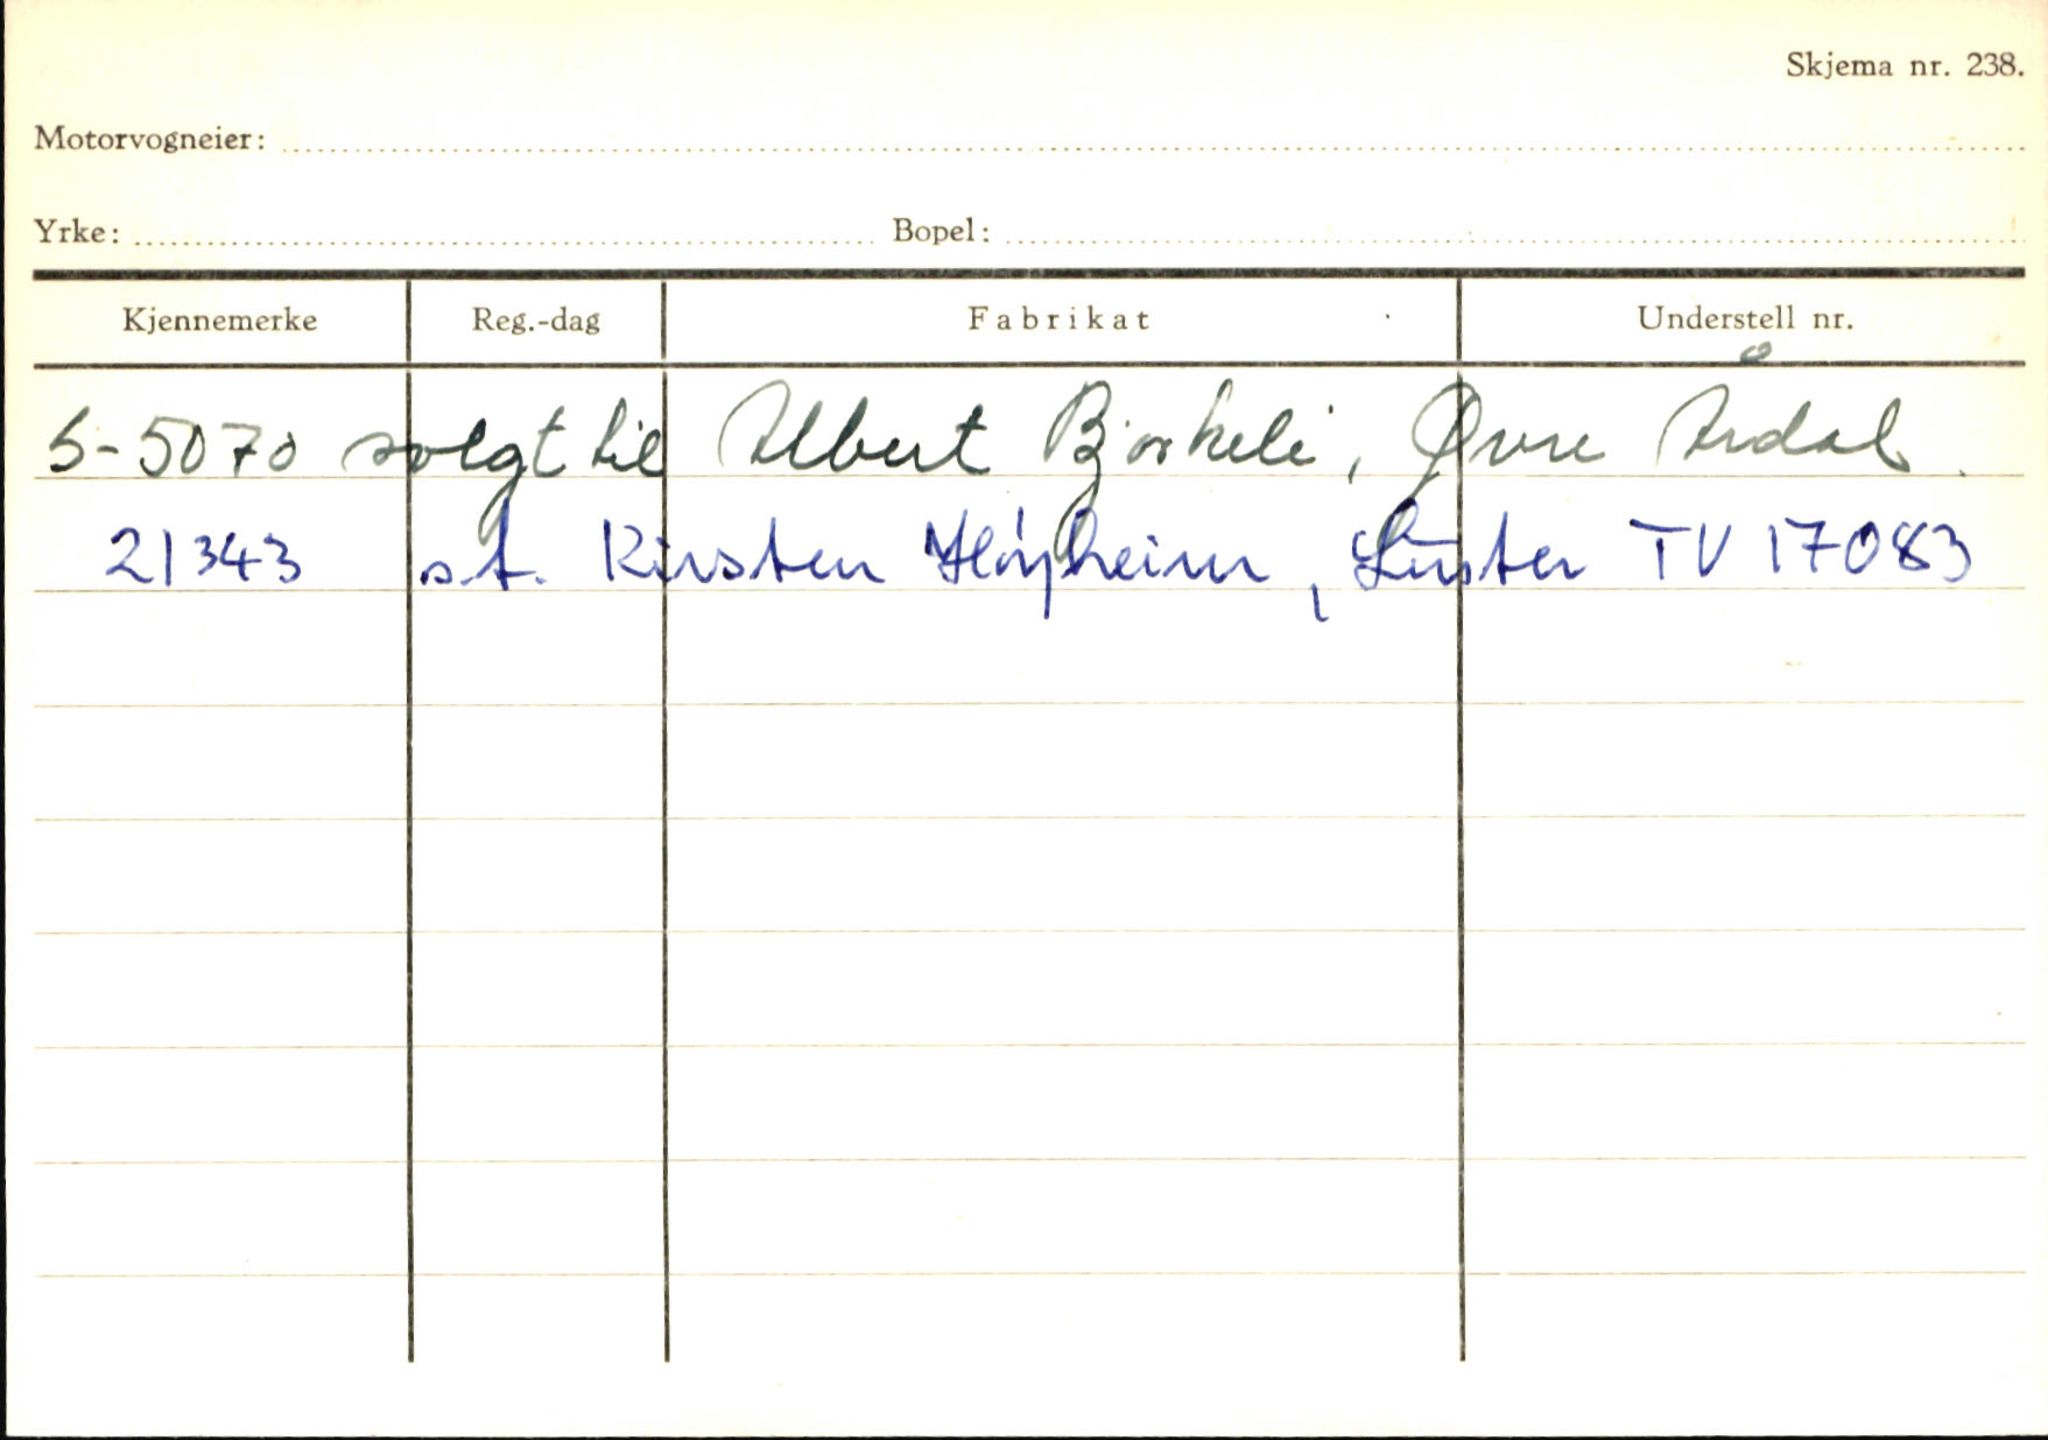 Skjema nr. 238.
Motorvogneier:
Yrke: Bopel:
Kjennemerke Reg.-dag Fabrikat Understell nr.
S-5070 solgt til Albert Bjørkeli, Øvre Årdal.
21343 s.t. Kirsten Høyheim, Luster TV 17083